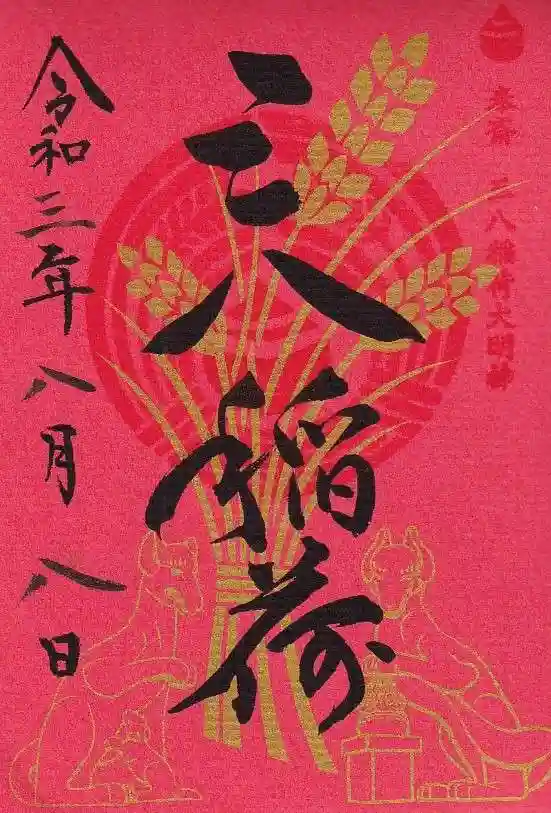 奉斎 三八稲荷大明神
三八稲荷
令和三年八月八日